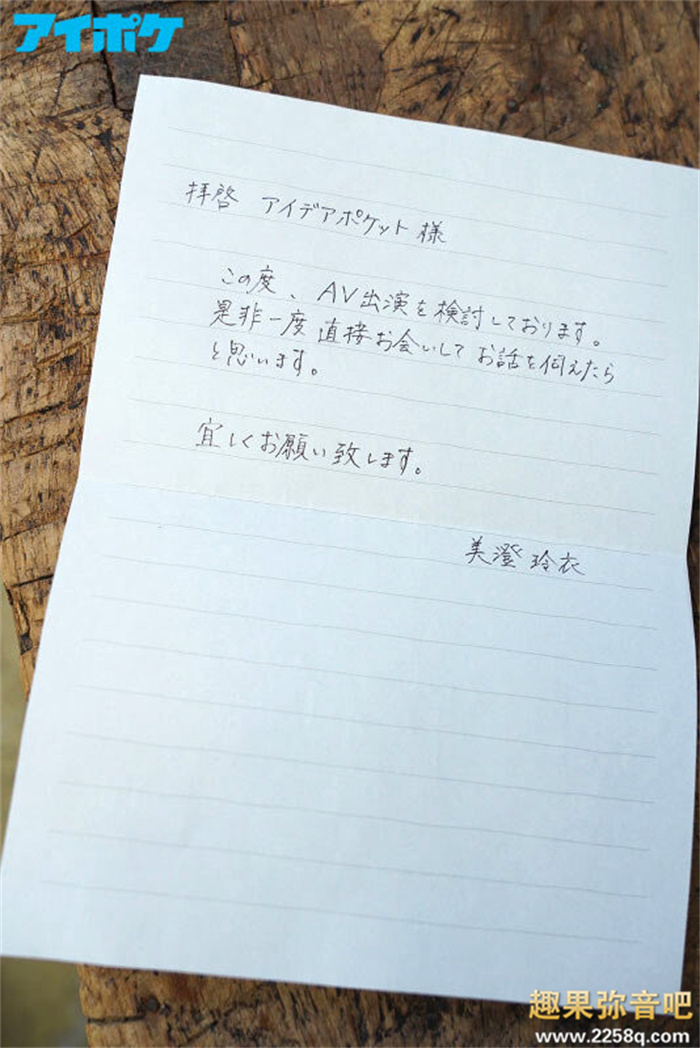 アイポケ
拝啓 アイデアポケット様
この度、AV出演を検討しております。
是非一度直接お会いしてお話を伺えたら
と思います。
宜しくお願い致します。
美澄玲衣
趣果弥音吧
www.2258q.com